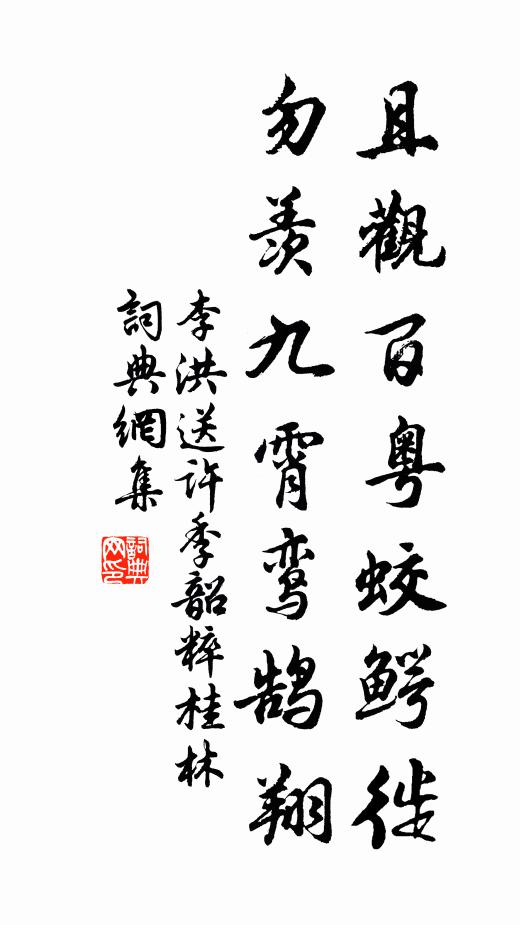 且觀百粵蛟鰐徙
勿羨九霄鸾鹄翔
李洪送許季韶粹桂林
詞典網集
詞典網印